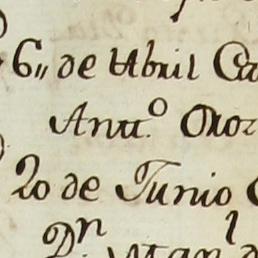 6,, de Abril Ca
Antt.º Oroz
20 de Junio
Dn